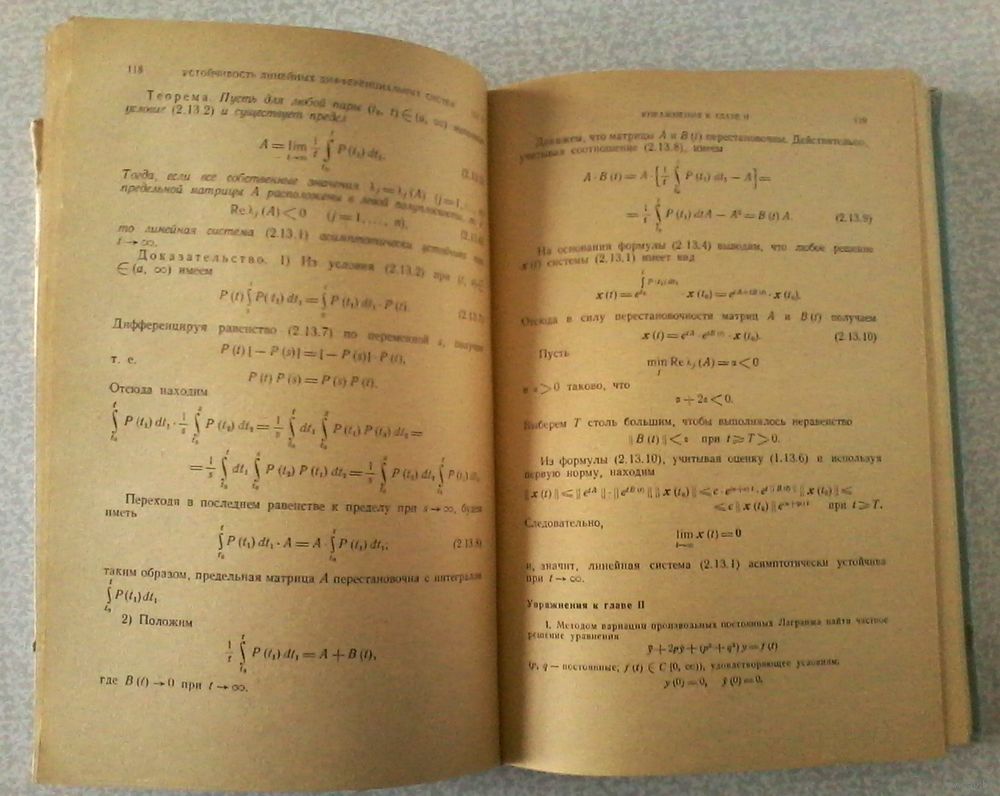 118 УСТОЙЧИВОСТЬ ЛИНЕЙНЫХ ДИФФЕРЕНЦИАЛЬНЫХ СИСТЕМ
Теорема. Пусть для любой пары (t₀, t) ∈ (a, ∞)
условие (2.13.2) и существует предел
A = lim_{t→∞} 1/t ∫_{t₀}^{t} P(t₁) dt₁.
Тогда, если все собственные значения λⱼ = λⱼ(A) (j = 1,
предельной матрицы A расположены в левой полуплоскости,
Re λⱼ(A) < 0 (j = 1, . . . , n),
то линейная система (2.13.1) асимптотически устойчива при
t → ∞.
Доказательство. 1) Из условия (2.13.2) при
∈ (a, ∞) имеем
P(t) ∫_{s}^{t} P(t₁) dt₁ = ∫_{s}^{t} P(t₁) dt₁ · P(t).
Дифференцируя равенство (2.13.7) по переменной s, получим
P(t) [— P(s)] = [— P(s)] · P(t),
т. е.
P(t) P(s) = P(s) P(t).
Отсюда находим
∫_{t₀}^{t} P(t₁) dt₁ · 1/s ∫_{t₀}^{s} P(t₂) dt₂ = 1/s ∫_{t₀}^{t} dt₁ ∫_{t₀}^{s} P(t₁) P(t₂) dt₂ =
= 1/s ∫_{t₀}^{t} dt₁ ∫_{t₀}^{s} P(t₂) P(t₁) dt₂ = 1/s ∫_{t₀}^{s} P(t₂) dt₂ ∫_{t₀}^{t} P(t₁) dt₁.
Переходя в последнем равенстве к пределу при s → ∞, будем
иметь
∫_{t₀}^{t} P(t₁) dt₁ · A = A · ∫_{t₀}^{t} P(t₁) dt₁; (2.13.8)
таким образом, предельная матрица A перестановочна с интегралом
∫_{t₀}^{t} P(t₁) dt₁.
2) Положим
1/t ∫_{t₀}^{t} P(t₁) dt₁ = A + B(t),
где B(t) → 0 при t → ∞.
УПРАЖНЕНИЯ К ГЛАВЕ II 119
Докажем, что матрицы A и B(t) перестановочны. Действительно,
учитывая соотношение (2.13.8), имеем
A · B(t) = A · [1/t ∫_{t₀}^{t} P(t₁) dt₁ — A] =
= 1/t ∫_{t₀}^{t} P(t₁) dt₁A — A² = B(t) A. (2.13.9)
На основания формулы (2.13.4) выводим, что любое решение
x(t) системы (2.13.1) имеет вид
x(t) = e^{∫_{t₀}^{t} P(t₁) dt₁} · x(t₀) = e^{tA+tB(t)} · x(t₀).
Отсюда в силу перестановочности матриц A и B(t) получаем
x(t) = e^{tA} · e^{tB(t)} · x(t₀). (2.13.10)
Пусть
Re λⱼ(A) = α < 0
и ε > 0 таково, что
α + 2ε < 0.
Выберем T столь большим, чтобы выполнялось неравенство
‖B(t)‖ < ε при t ⩾ T > 0.
Из формулы (2.13.10), учитывая оценку (1.13.6) и используя
первую норму, находим
‖x(t)‖ ⩽ ‖e^{tA}‖ · ‖e^{tB(t)}‖ ‖x(t₀)‖ ⩽ c · e^{(α+ε)t} · e^{t‖B(t)‖} ‖x(t₀)‖ ⩽
⩽ c‖x(t₀)‖ e^{(α+2ε)t} при t ⩾ T.
Следовательно,
lim_{t→∞} x(t) = 0
и, значит, линейная система (2.13.1) асимптотически устойчива
при t → ∞.
Упражнения к главе II
1. Методом вариации произвольных постоянных Лагранжа найти частное
решение уравнения
ÿ + 2pẏ + (p² + q²) y = f(t)
(p, q — постоянные; f(t) ∈ C [0, ∞)), удовлетворяющее условиям:
y(0) = 0, ẏ(0) = 0.